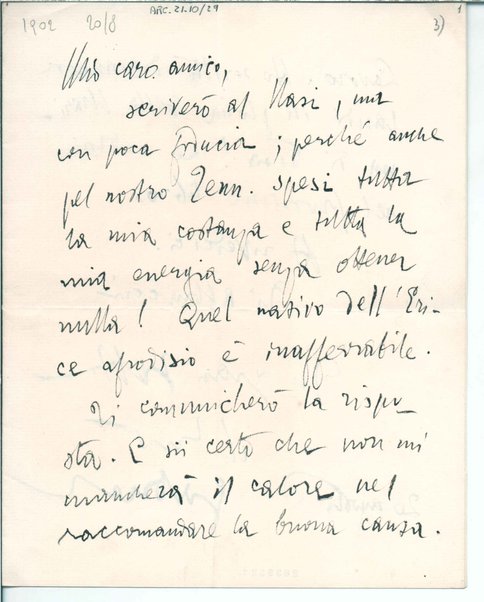 ARC. 21.10/29
1
1902 20/8 3)
Mio caro amico,
scriverò al Nasi, ma
con poca fiducia; perché anche
pel nostro Zenn. spesi tutta
la mia costanza e tutta la
mia energia senza ottener
nulla! Quel nativo dell'Eri-
ce afrodisio è inafferrabile.
Ti comunicherò la rispo-
sta. E sii certo che non mi
mancherà il calore nel
raccomandare la buona causa.